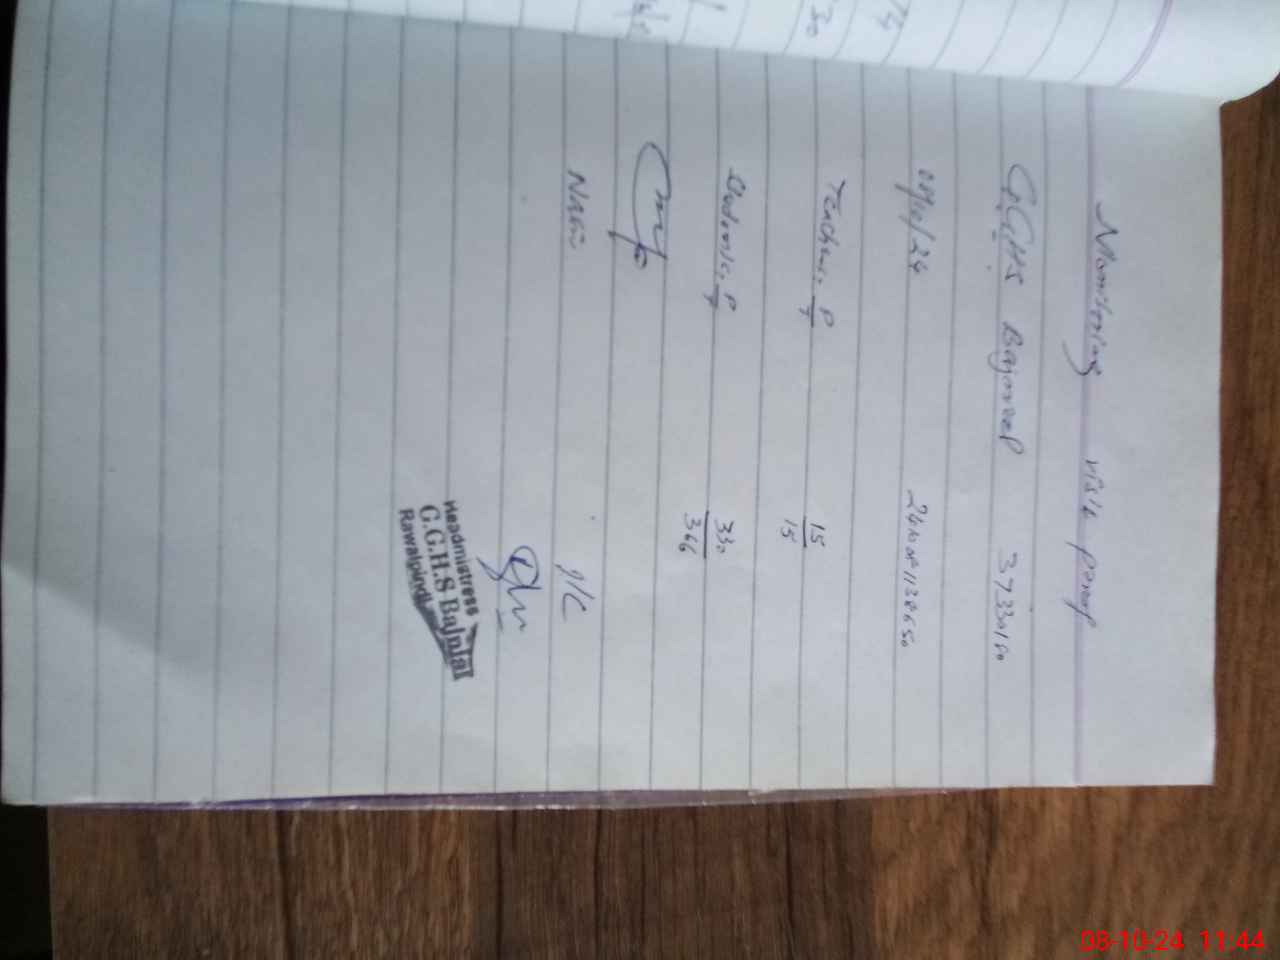 Monitoring visit proof
G.G.H.S Bajnial 37330180
08/10/24 2410081138650
Teachers P/T 15/15
Students P/T 330/366
I/C
Headmistress
G.G.H.S Bajnial
Rawalpindi
08-10-24 11:44